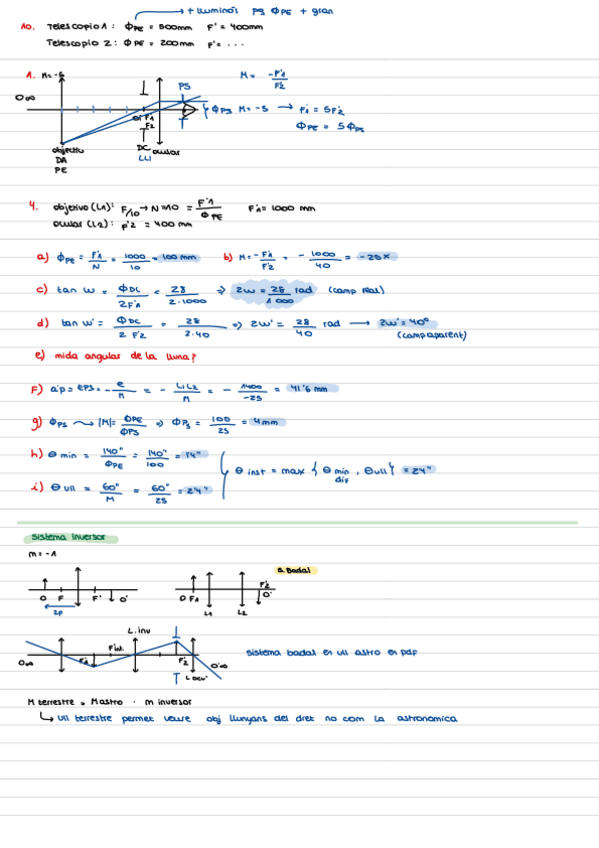 + lluminós pq ΦPE + gran
10. Telescopio 1: ΦPE = 500mm F' = 400mm
Telescopio 2: ΦPE = 200mm F' = ...
1. M = -5
M = -F'1/F'2
PS
O∞
ΦPS M = -5 → F'1 = 5F'2
F'1
F2
ΦPE = 5ΦPS
objectiu
DA
PE
DC
LLI
ocular
4. objetivo (L1): F/10 → N=10 = F'1/ΦPE F'1 = 1000 mm
ocular (L2): F'2 = 400 mm
a) ΦPE = F'1/N = 1000/10 = 100 mm b) M = -F'1/F'2 = -1000/40 = -25x
c) tan w = ΦDC/2F'1 = 28/2·1000 ⇒ 2w = 28/1000 rad (camp real)
d) tan w' = ΦDC/2F'2 = 28/2·40 ⇒ 2w' = 28/40 rad → 2w' = 40° (camp aparent)
e) mida angular de la lluna?
F) a'p = EPS = -e/M = -L1L2/M = -1400/-25 = 41'6 mm
g) ΦPS → |M| = ΦPE/ΦPS ⇒ ΦPS = 100/25 = 4mm
h) θmin = 140"/ΦPE = 140"/100 = 1'4"
θinst = max {θmin dif, θull} = 2'4"
i) θull = 60"/M = 60"/25 = 2'4"
Sistema inversor
m = -1
S. Badal
O F F' O'
2F
O F1 F'2 O'
L1 L2
L.inv
O∞ F'1 F'int. F'2 O'∞
L ocu'
sistema badal en ull astro en pdf
M terrestre = Mastro · m inversor
↳ Ull terrestre permet veure obj llunyans del dret no com la astronomica